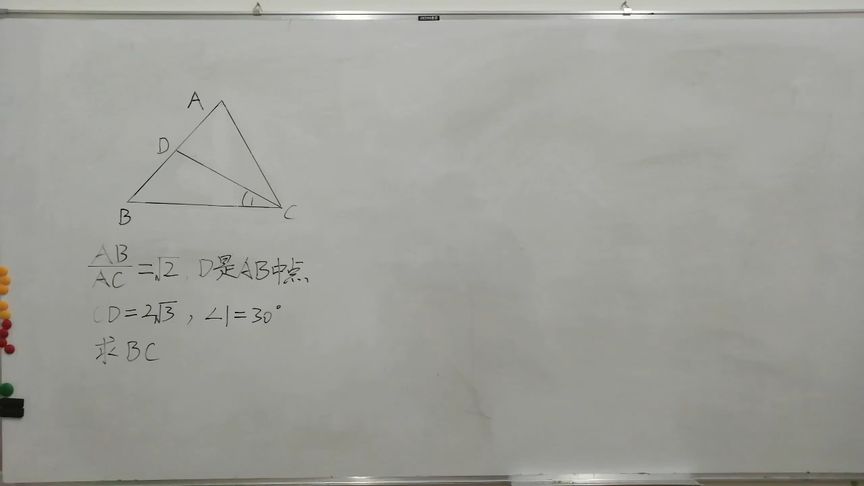 A
D
B
1
C
AB/AC=√2, D是AB中点
CD=2√3, ∠1=30°
求BC